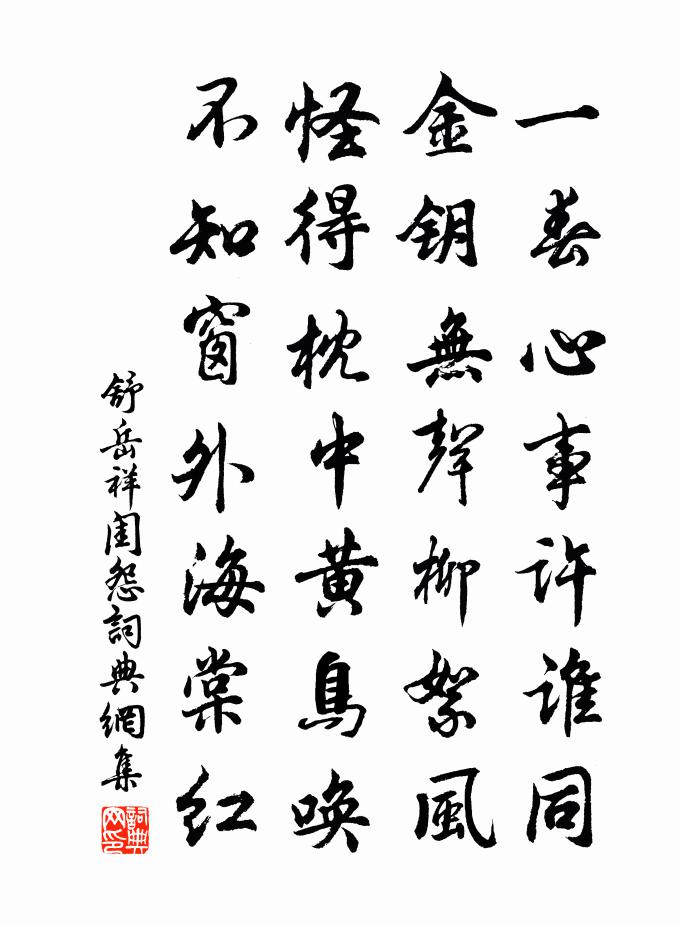 一春心事許誰同
金鑰無聲柳絮風
怪得枕中黃鳥喚
不知窗外海棠紅
舒岳祥閨怨詞典網集
詞典網印